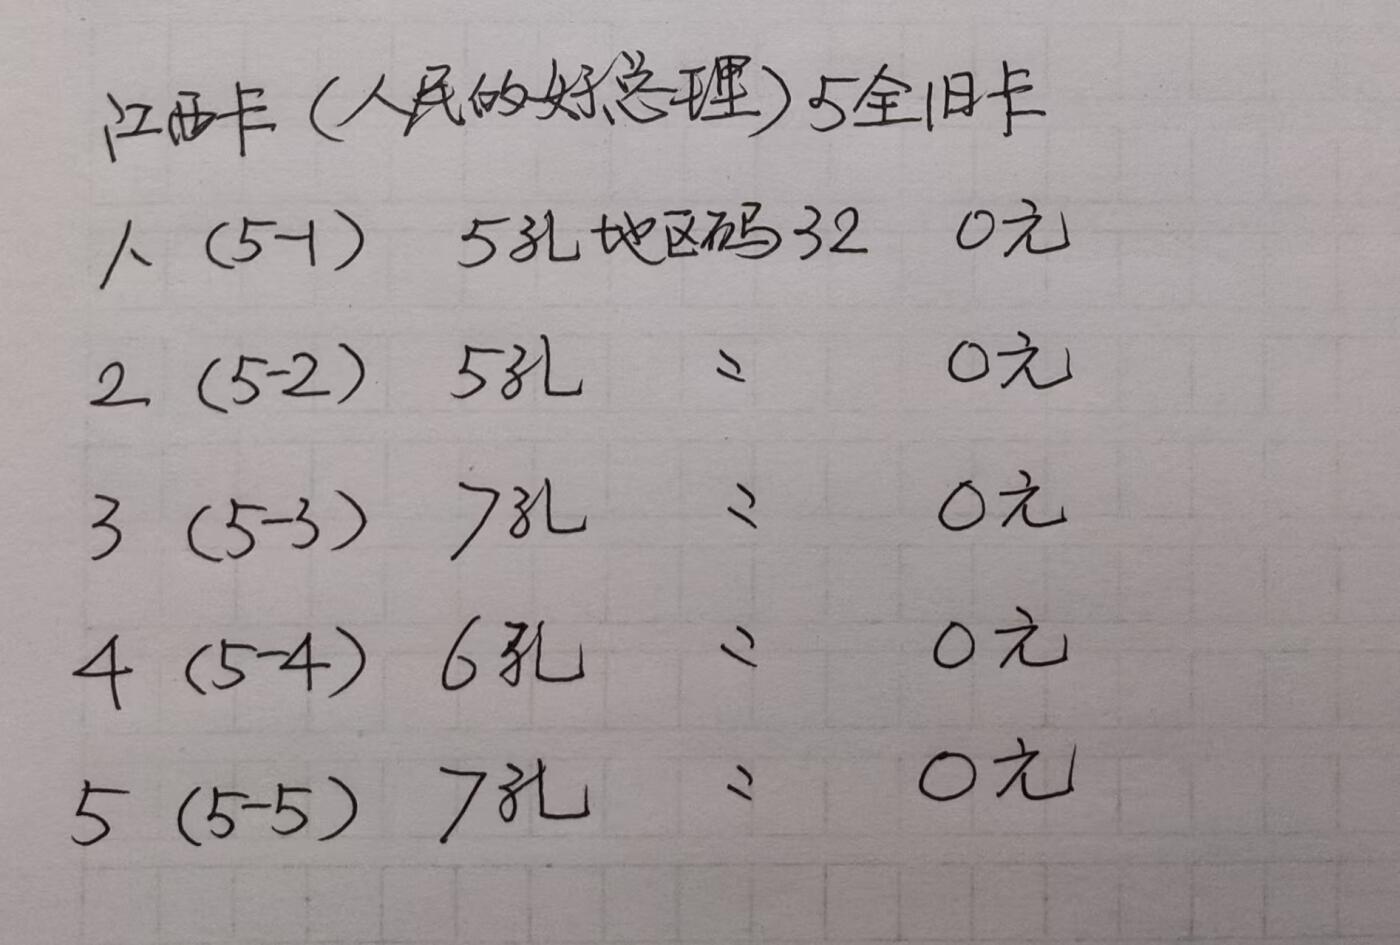 江西卡(人民的好总理)5全旧卡
1、(5-1) 5孔 地区码32 0元
2 (5-2) 5孔 〃 0元
3 (5-3) 7孔 〃 0元
4 (5-4) 6孔 〃 0元
5 (5-5) 7孔 〃 0元